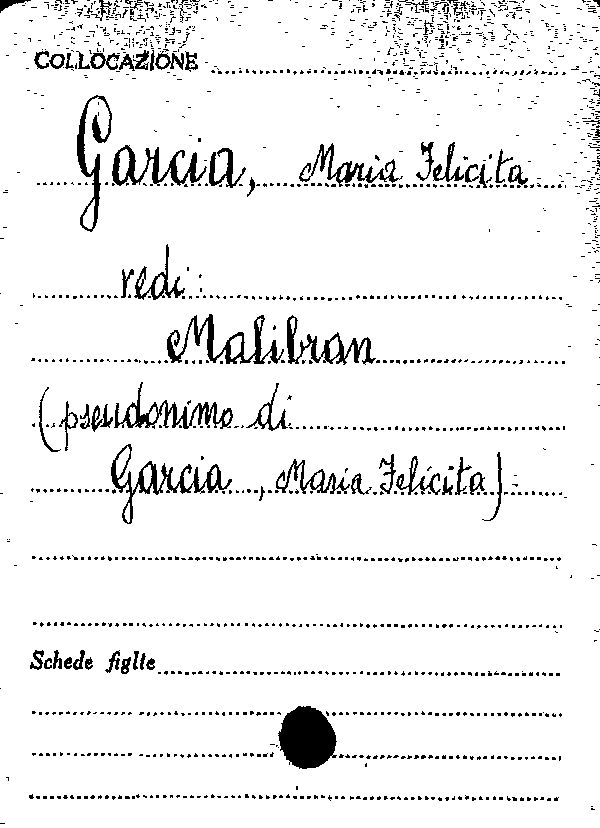 COLLOCAZIONE
Garcia, Maria Felicita
vedi:
Malibran
(pseudonimo di
Garcia, Maria Felicita)
Schede figlie